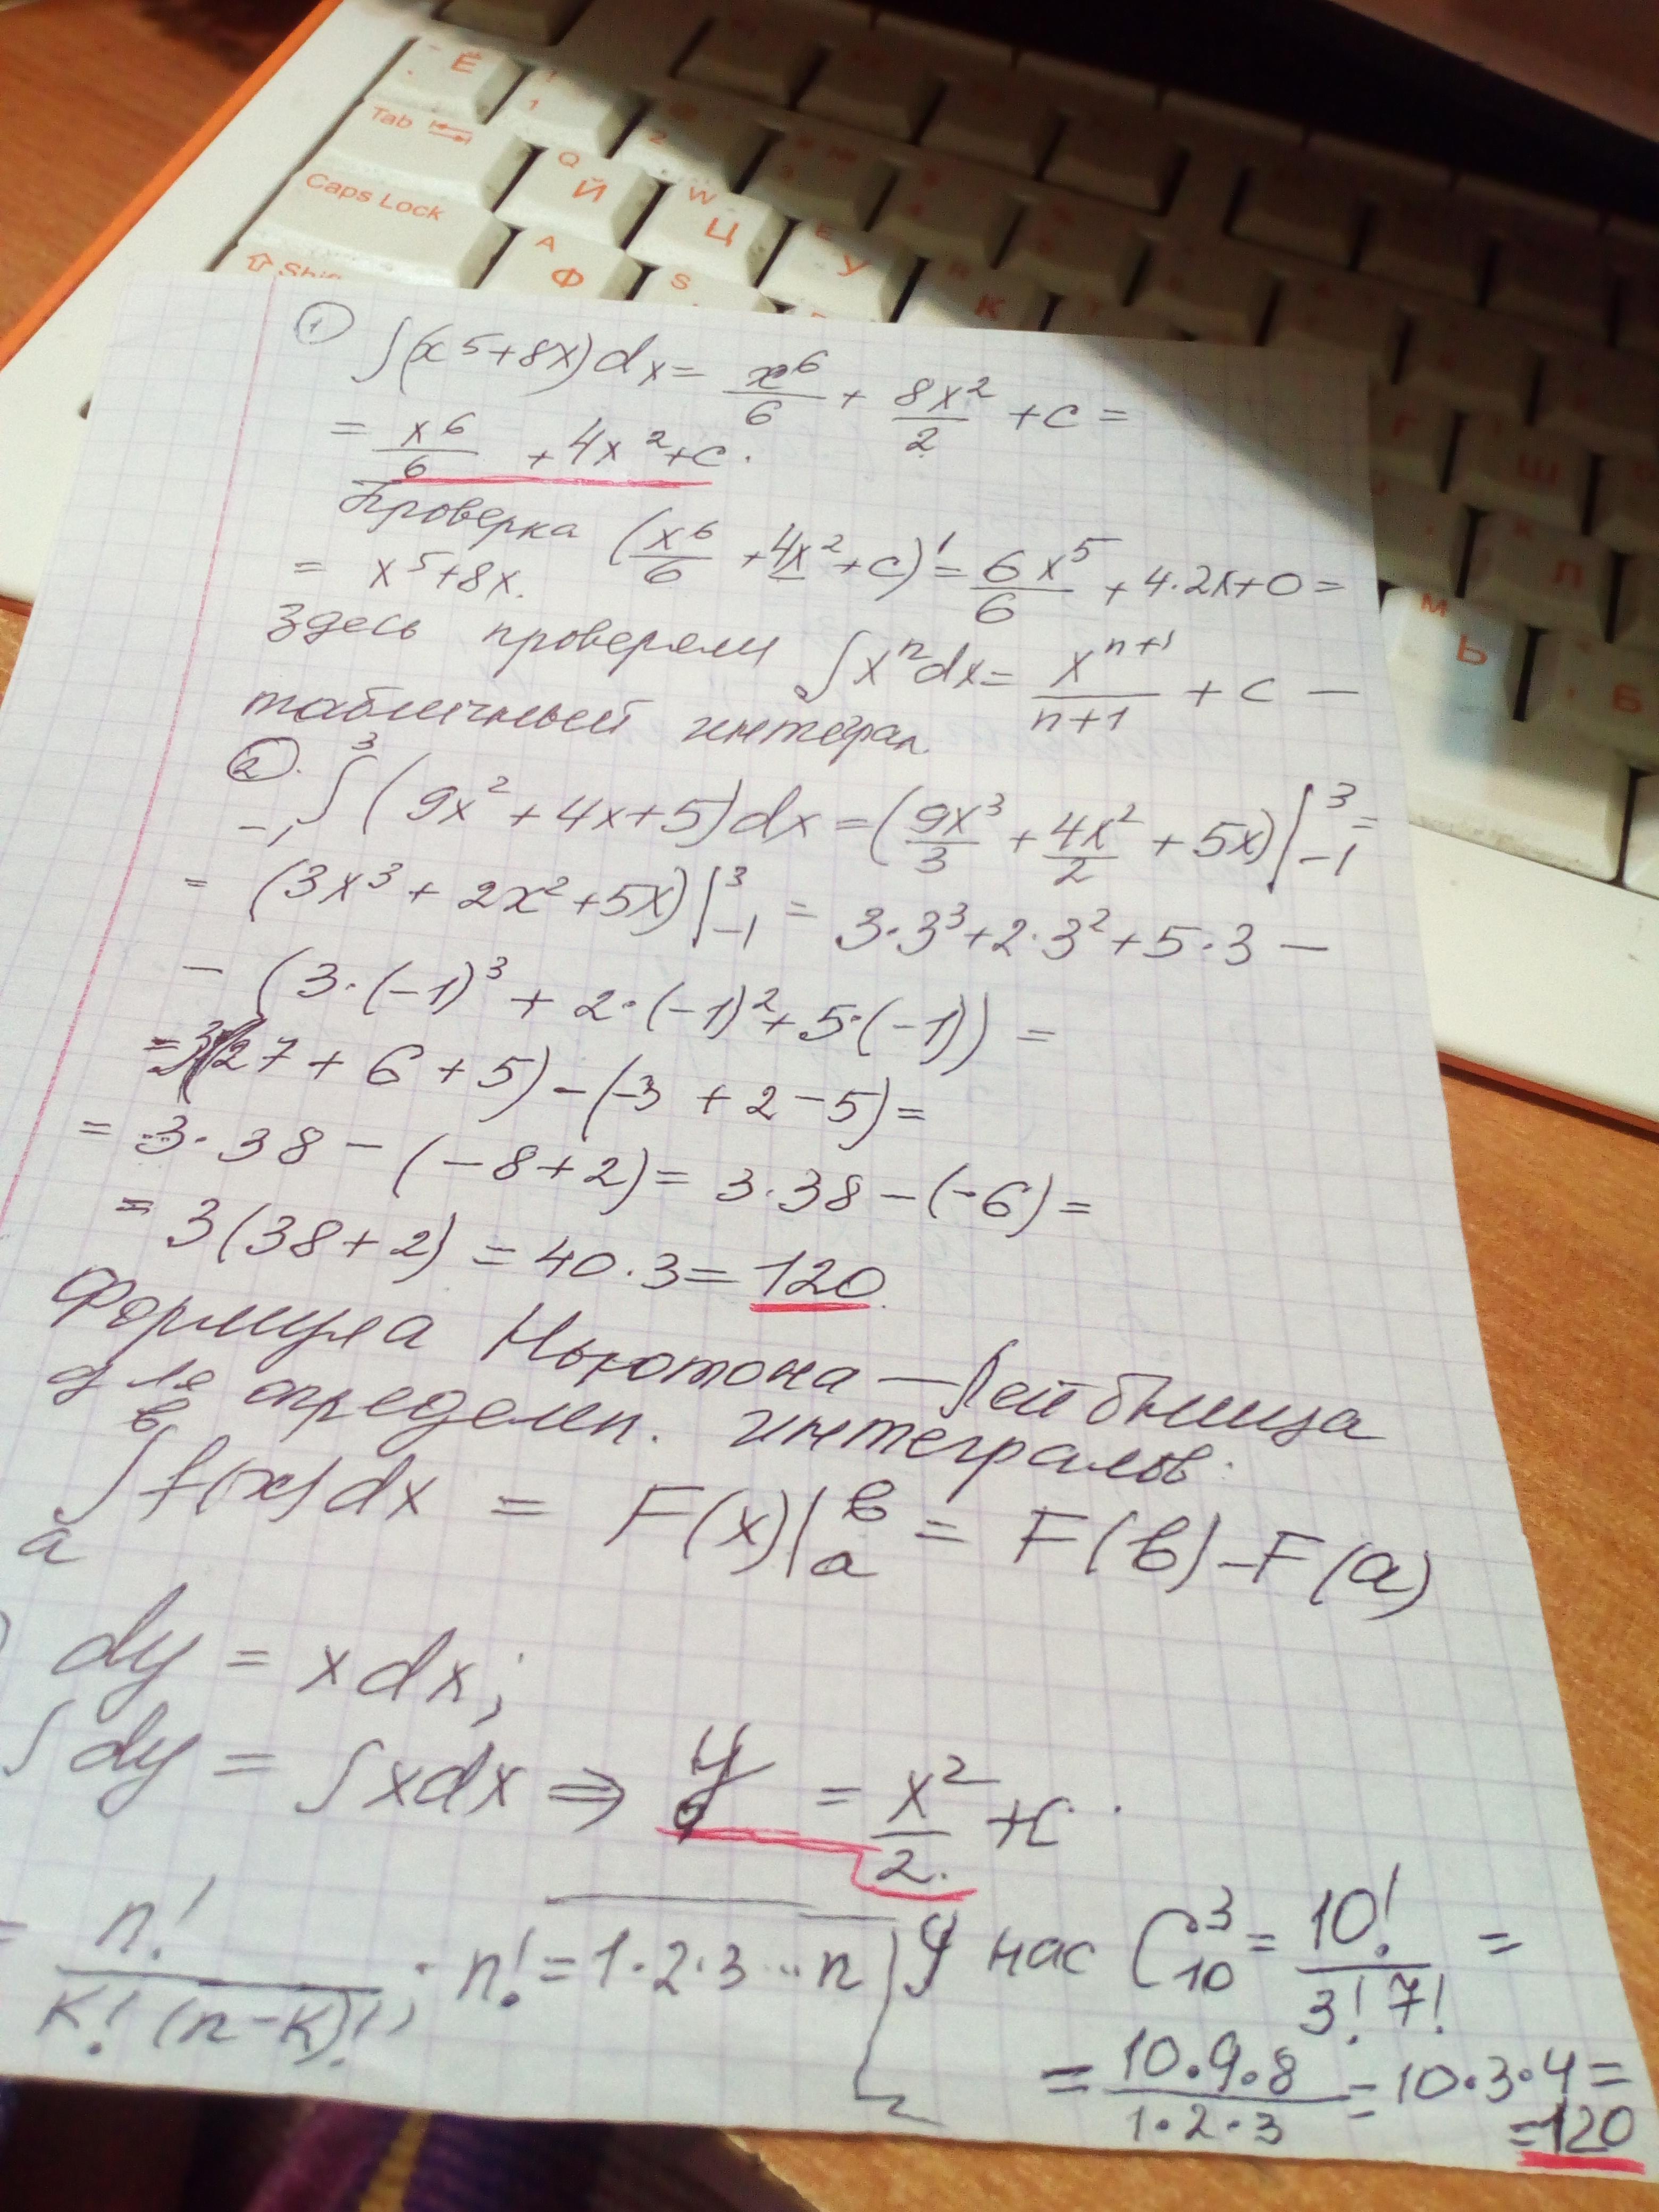 Ё
1
2
Tab
Q Й
W Ц
Е У
Caps Lock
A Ф
S
К
Shif
М Ь
Б
① ∫(x⁵+8x)dx = x⁶/6 + 8x²/2 + c =
= x⁶/6 + 4x² + c.
Проверка (x⁶/6 + 4x² + c)' = 6x⁵/6 + 4·2x + 0 =
= x⁵+8x.
Здесь проверяли ∫xⁿdx = xⁿ⁺¹/(n+1) + c —
табличный интеграл.
②. ₋₁∫³ (9x² + 4x + 5)dx = (9x³/3 + 4x²/2 + 5x)|³₋₁ =
= (3x³ + 2x² + 5x)|³₋₁ = 3·3³ + 2·3² + 5·3 —
— (3·(-1)³ + 2·(-1)² + 5·(-1)) =
= 3(27 + 6 + 5) - (-3 + 2 - 5) =
= 3·38 - (-8 + 2) = 3·38 - (-6) =
= 3(38 + 2) = 40·3 = 120.
Формула Ньютона — Лейбница
для определ. интегралов.
ₐ∫ᵇ f(x)dx = F(x)|ᵇₐ = F(b) - F(a)
) dy = xdx;
∫dy = ∫xdx ⇒ y = x²/2 + C.
= n!/(K!(n-K)!); n! = 1·2·3...n
У нас C³₁₀ = 10!/(3!7!) =
= 10·9·8/(1·2·3) = 10·3·4 =
= 120